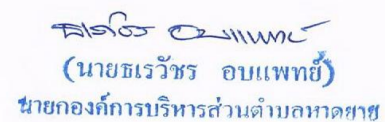 (นายธเรวัชร อบแพทย์)
นายกองค์การบริหารส่วนตำบลหาดยาย